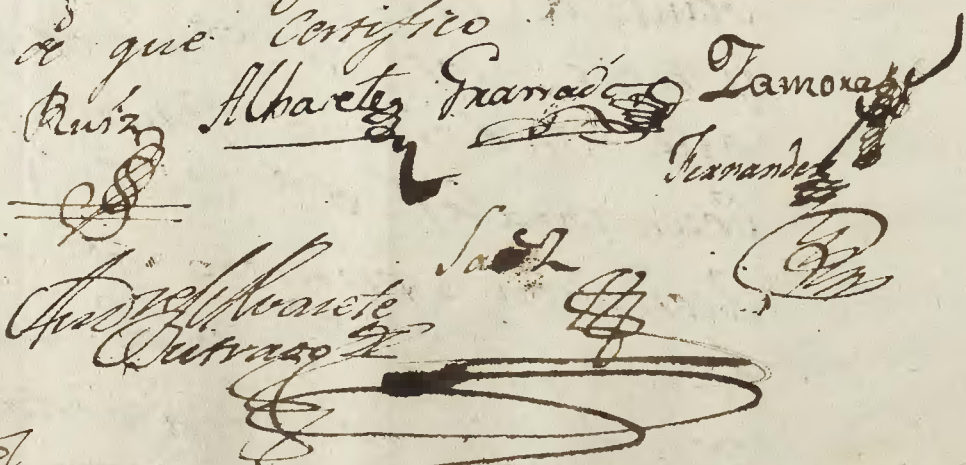 de que Certifico
Ruíz Alharete Granado Zamora
Fernandez
Saez
Andres Alvarete
Buitrago